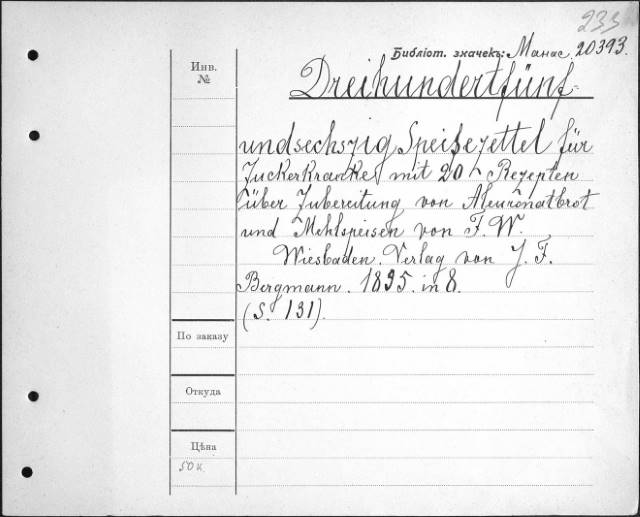 233
Библіот. значекъ: Манас. 20393.
Инв.
№
Dreihundertfünf-
undsechszig Speisezettel für
Zuckerkranke mit 20 Rezepten
über Zubereitung von Aleuronatbrot
und Mehlspeisen von F. W.
Wiesbaden. Verlag von J. F.
Bergmann. 1895. in 8.
(S. 131).
По заказу
Откуда
Цѣна
50 к.